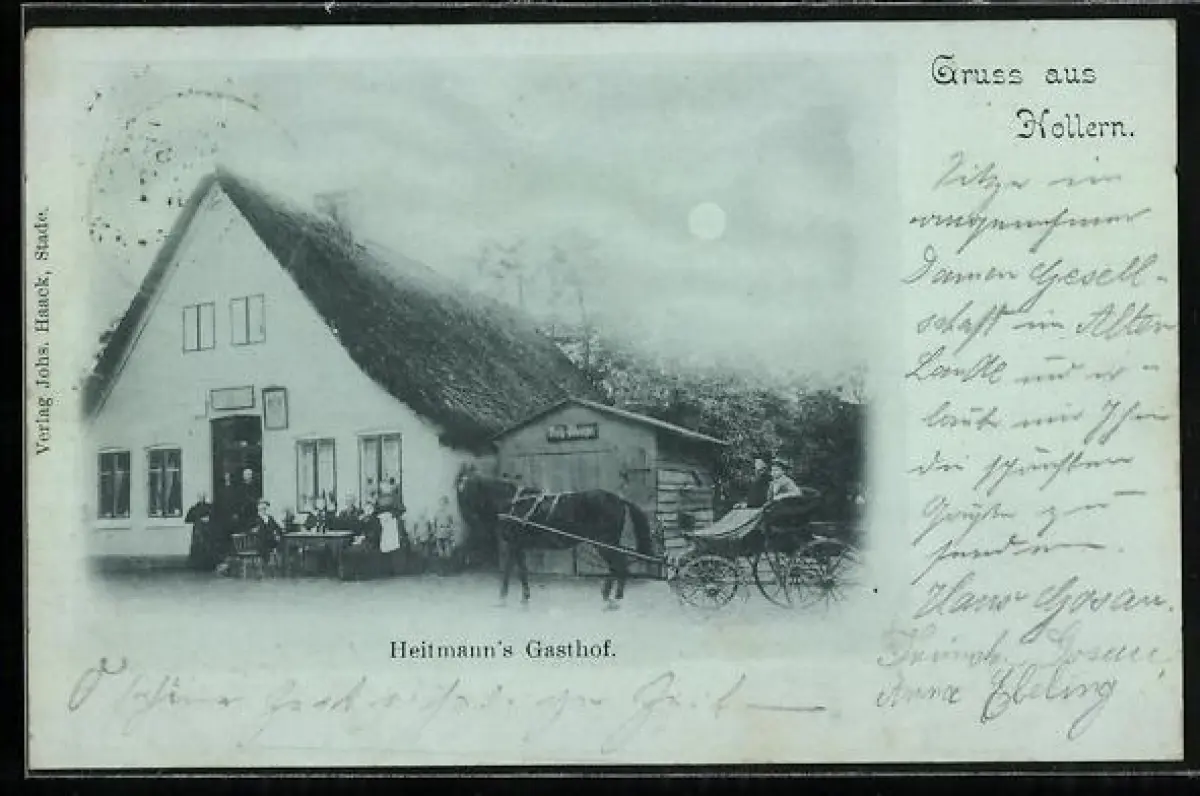 Gruss aus
Hollern.
Sitze in
angenehmer
Damen Gesell-
schaft im Alten
Lande und er-
laube mir Ihnen
die schönsten
Grüße zu
senden.
Hans Gosau.
Heinrich
Anna Ebeling
Heitmann's Gasthof.
O schöne
Zeit
Verlag Johs. Haack, Stade.